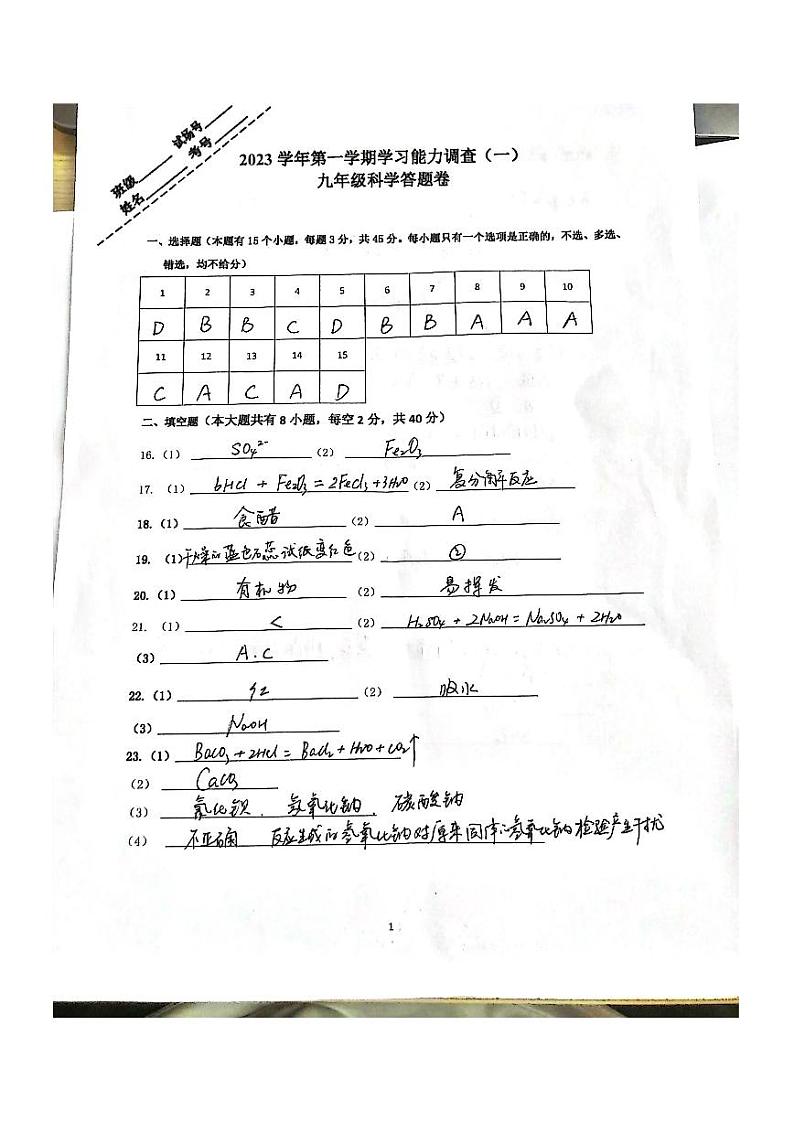 班级 试场号
姓名 考号
2023 学年第一学期学习能力调查（一）
九年级科学答题卷
一、选择题（本题有 15 个小题，每题 3 分，共 45 分。每小题只有一个选项是正确的，不选、多选、
错选，均不给分）
1 2 3 4 5 6 7 8 9 10
D B B C D B B A A A
11 12 13 14 15
C A C A D
二、填空题（本大题共有 8 小题，每空 2 分，共 40 分）
16.（1） SO₄²⁻ （2） Fe₂O₃
17.（1） 6HCl + Fe₂O₃ = 2FeCl₃+3H₂O （2） 复分解反应
18.（1） 食醋 （2） A
19.（1）干燥的蓝色石蕊试纸变红色（2） ②
20.（1） 有机物 （2） 易挥发
21.（1） < （2） H₂SO₄ + 2NaOH = Na₂SO₄ + 2H₂O
（3） A.C
22.（1） 红 （2） 吸水
（3） NaOH
23.（1） BaCO₃+2HCl = BaCl₂+H₂O+CO₂↑
（2） CaCO₃
（3） 氯化钡、氢氧化钠、碳酸钠
（4） 不正确 反应生成的氢氧化钠对原来固体的氢氧化钠检验产生干扰
1